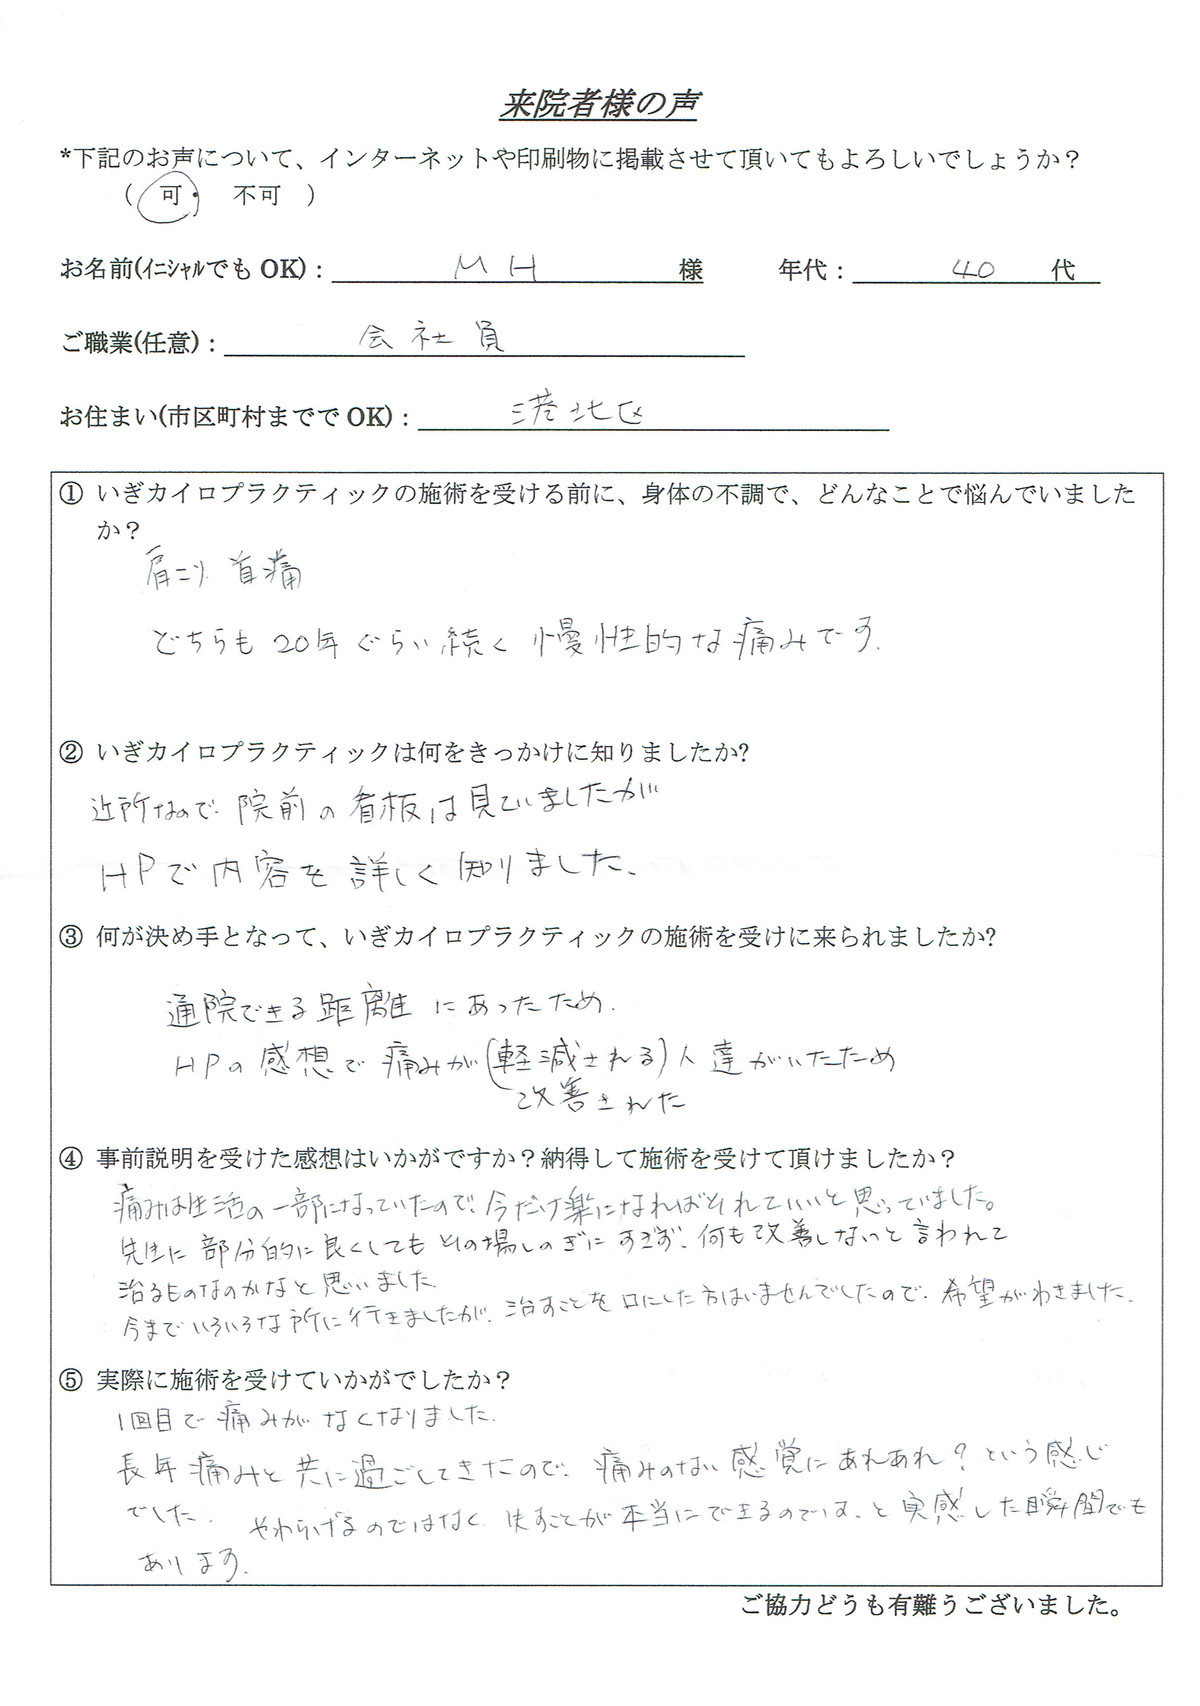 来院者様の声
*下記のお声について、インターネットや印刷物に掲載させて頂いてもよろしいでしょうか？
( 可・ 不可 )
お名前(ｲﾆｼｬﾙでも OK)： MH 様 年代： 40 代
ご職業(任意)： 会社員
お住まい(市区町村まででOK)： 港北区
① いぎカイロプラクティックの施術を受ける前に、身体の不調で、どんなことで悩んでいました
か？
肩こり 首痛
どちらも20年ぐらい続く慢性的な痛みです.
② いぎカイロプラクティックは何をきっかけに知りましたか?
近所なので 院前の看板は見ていましたが
HPで内容を詳しく知りました、
③ 何が決め手となって、いぎカイロプラクティックの施術を受けに来られましたか?
通院できる距離にあったため.
HPの感想で痛みが(軽減される)人達がいたため
改善された
④ 事前説明を受けた感想はいかがですか？納得して施術を受けて頂けましたか？
痛みは生活の一部になっていたので、今だけ楽になればそれでいいと思っていました。
先生に部分的に良くしてもその場しのぎにすぎず、何も改善しないっと言われて
治るものなのかなと思いました.
今までいろいろな所に行きましたが、治すことを口にした方はいませんでしたので、希望がわきました.
⑤ 実際に施術を受けていかがでしたか？
1回目で痛みがなくなりました.
長年痛みと共に過ごしてきたので、痛みのない感覚にあれあれ？という感じ
でした. やわらげるのではなく、 すことが本当にできるのでは、と実感した瞬間でも
あります.
ご協力どうも有難うございました。